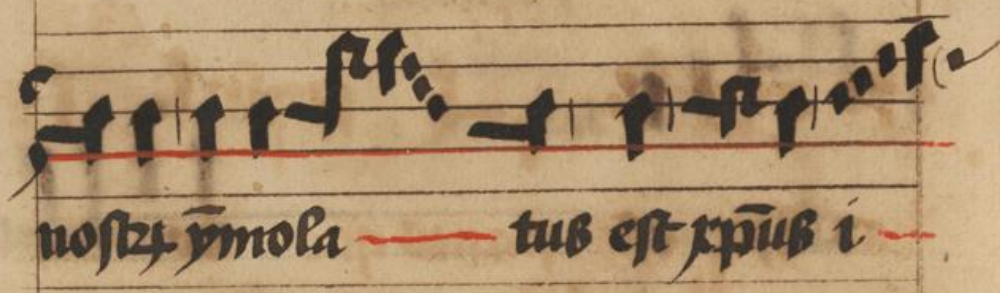 nostrꝝ ȳmola tus est xp̄us i